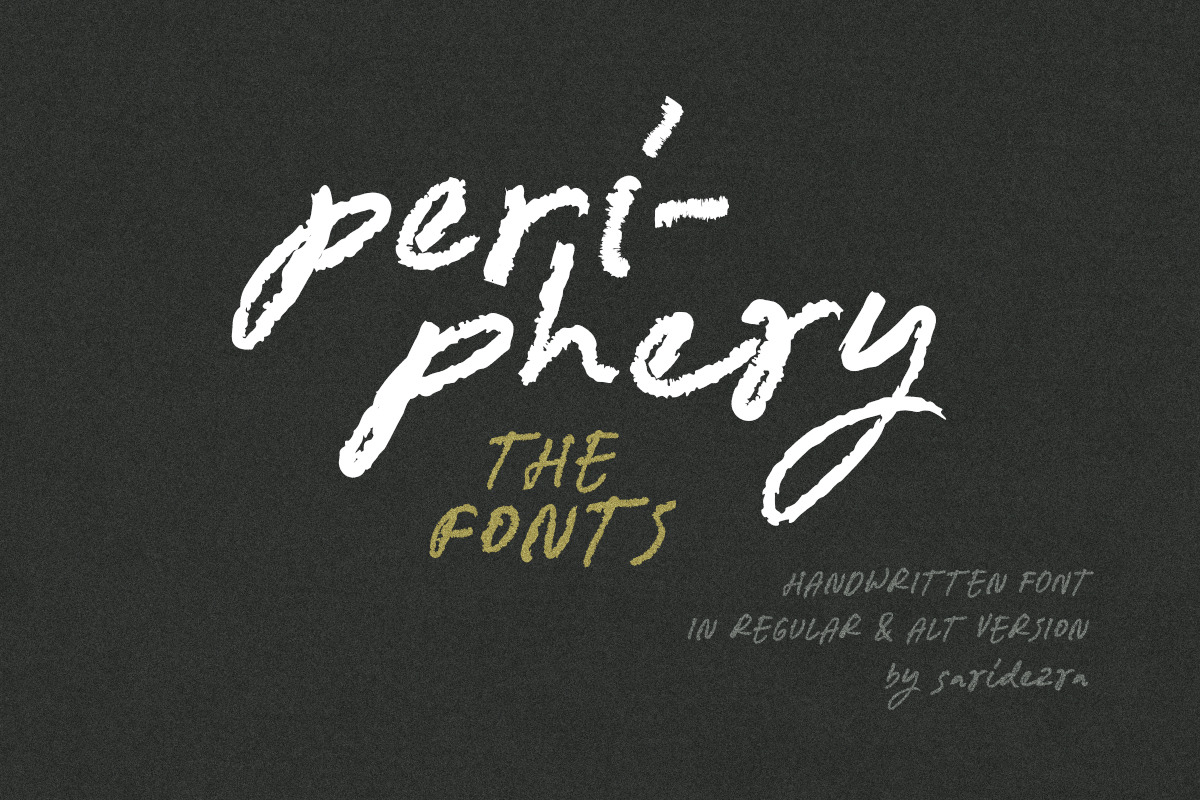 peri-
phery
THE
FONTS
HANDWRITTEN FONT
IN REGULAR & ALT VERSION
by saridezra